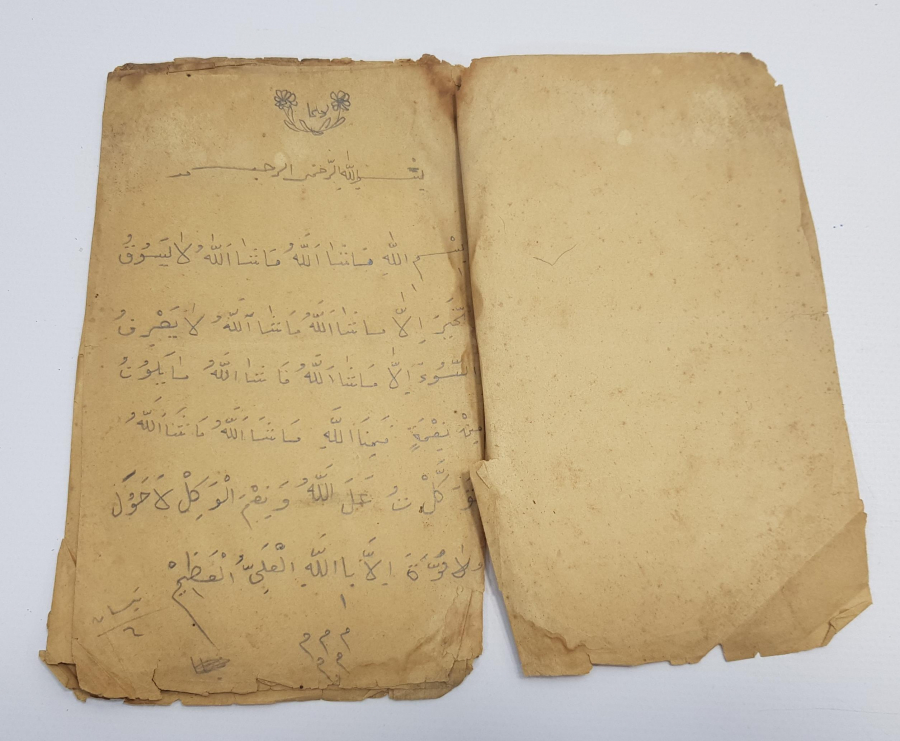 بسم الله الرحمن الرحيم
بِسْمِ اللّٰهِ مَاشَاءَ اللّٰهُ مَاشَاءَ اللّٰهُ لَا يَسُوْقُ
الْخَيْرَ اِلَّا مَاشَاءَ اللّٰهُ مَاشَاءَ اللّٰهُ لَا يَصْرِفُ
السُّوءَ اِلَّا مَاشَاءَ اللّٰهُ مَاشَاءَ اللّٰهُ مَا يَكُوْنُ
مِنْ نِعْمَةٍ فَمِنَ اللّٰهِ مَاشَاءَ اللّٰهُ مَاشَاءَ اللّٰهُ
تَوَكَّلْتُ عَلَ اللّٰهُ وَنِعْمَ الْوَكِلْ لَا حَوْلَ
وَلَا قُوَّةَ اِلَّا بِااللّٰهِ الْعَلِىُّ الْعَظِيْمْ
نيسان
٢
١
م م م
م م